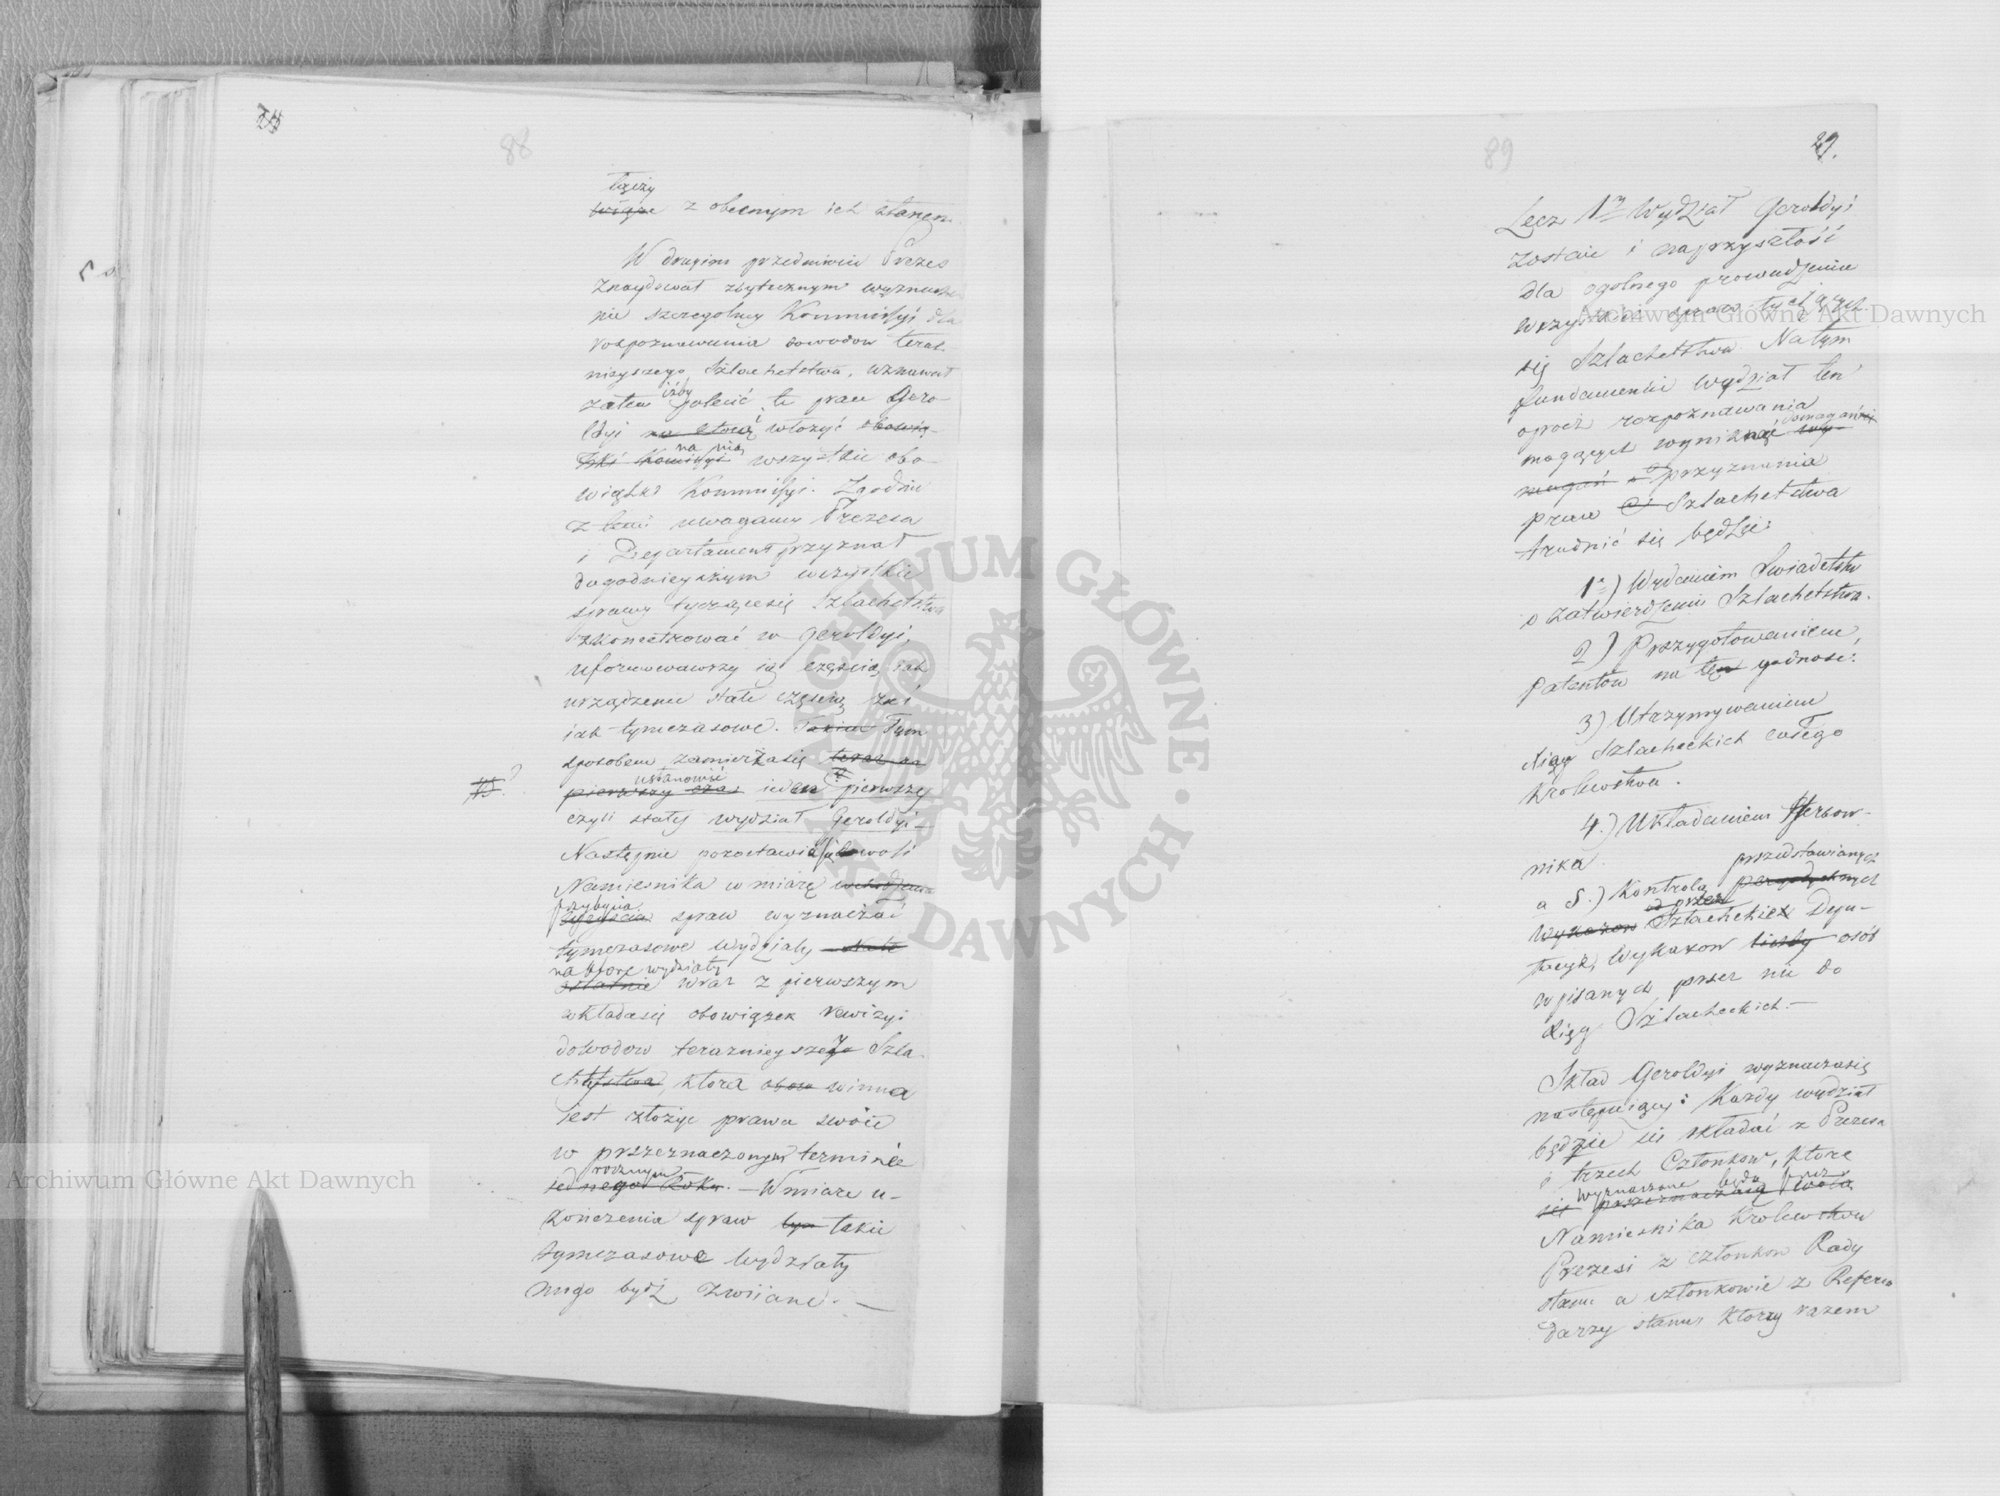 88
łączy
wiąże z obecnym ich stanem.
W drugim przedmiocie Prezes
znaydował zbytecznym wyznacze
nie szczegolney Kommissyi dla
rospoznawania dowodow teraz-
nieyszego Szlachetstwa, uznawał
zatem iżby polecić te prace Gero-
ldyi na ktorą włożyć obowią-
zki Komissyi na nią wszystkie obo-
wiązki Kommissyi. Zgodnie
z temi uwagami Prezesa
i Departament przyznał
dogodnieyszym wszystkie
sprawy tyczącesię Szlachetstwa
zkoncetrować w Geroldyi,
uformowawszy ią częścią iak
urządzenie stałe częścią zaś
iak tymczasowe. Takim Tym
sposobem zamierzasię teraz na
pierwszy czas ustanowić ieden pierwszy
czyli stały wydział Geroldyi-
Następnie pozostawia się woli
Namiesnika w miarę
przybycia spraw wyznaczać
tymczasowe wydziały
na ktore wydziały
ostatnie wraz z pierwszym
wkładasię obowiązek rewizyi
dowodow teraznieyszego Szla-
chetstwa, ktora winna
iest złożyc prawa swoie
w przeznaczonym terminie
rocznym
iednego Roku. — W miarę u-
kończenia spraw takie
tymczasowe Wydziały
mogo bydź zwiiane. —
89
29.
Lecz 1y Wydział Geroldyi
zostaie i naprzyszłość
dla ogolnego prowadzenia
wszystkich spraw tyczących
się Szlachetstwa. Natym
fundamencie wydział ten
oprocz rozpoznawania
mogących wyniknąć domagań
przyznania
praw Szlachetstwa
trudnić się będzie:
1o) Wydaniem Swiadectw
o zatwierdzeniu Szlachetstwa.
2) Przygotowaniem
Patentow na tę godnosc:
3) Utrzymywaniem
Xiąg Szlacheckich całego
Krolewstwa.
4.) Układaniem Herbow-
nika.
przedstawianych
a 5.) Kontrolą
od przez
Wykazow Szlacheckich Depu-
tacyi, Wykazow liczby osób
wpisanych przez nie do
Xiąg Szlacheckich.—
Skład Geroldyi wyznaczasię
następuiący: Każdy wydział
będzie się składać z Prezesa
i trzech Członkow, ktore
wyznaczone będą przez
się przeznaczaią wolą
Namiesnika Krolewskow
Prezesi z członkow Rady
stanu a członkowie z Referen
darzy stanu, ktorzy razem